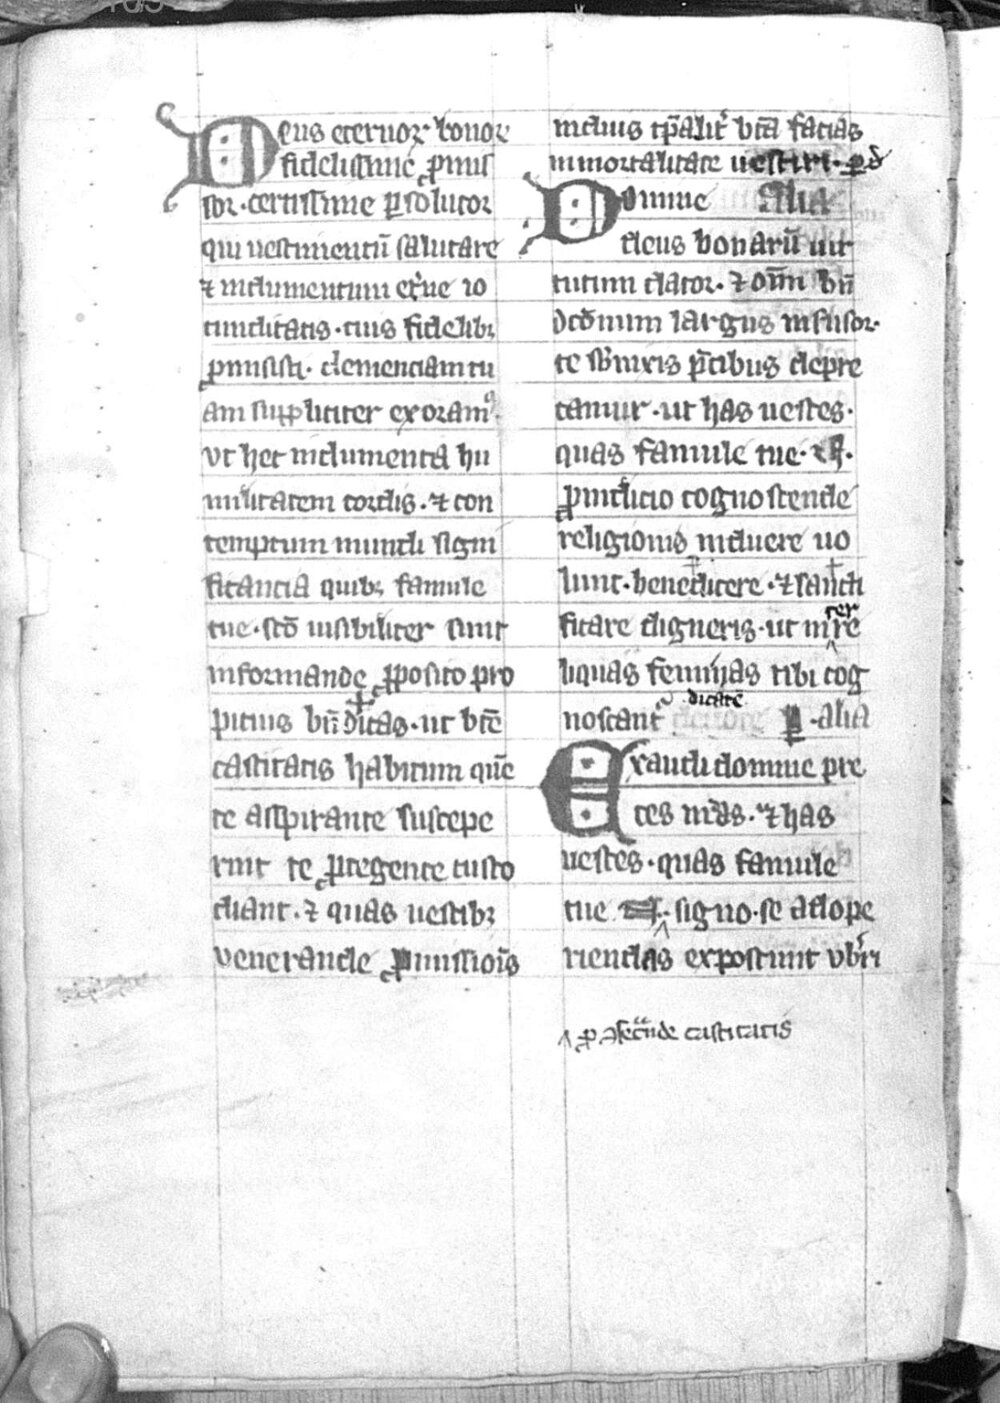 Deus eternoꝝ bonoꝝ
fidelissime ꝓmis
sor. certissime ꝑsolutor
qui uestimentū salutare
⁊ indumentum et̾ne io
cunditatis. tuis fidelibꝫ
ꝓmisisti. clemenciam tu
am suppliciter exoramꝰ.
vt hec indumenta hu
militatem cordis. ⁊ con
temptum mundi signi
ficancia quibꝫ famule
tue. sc̄o uisibiliter sunt
informande ꝓposito pro
picius bn̄dicas. ut btē
castitatis habitum quē
te aspirante suscepe
rint te ꝓtegente custo
diant. ⁊ quas uestibꝫ
venerande ꝓmissiōis
induis tp̄alit̾ btā facias
immortalitate uestiri. ꝑ d
Domine Alia
deus bonarū uir
tutum dator. ⁊ om̄m bn̄
dc̄onum largus infusor.
te sb̾nixis p̄cibus depre
camur. ut has uestes.
quas famule tue. N.
ꝓ indicio cognoscende
religionis induere uo
lunt. benedicere. ⁊ sancti
ficare digneris. ut int̾ re
ter
liquas feminas tibi cog
noscant̾ dicate P̱. alia
Exaudi domine pre
ces nr̄as. ⁊ has
uestes. quas famule
tue signo. se adope
riendas exposcunt vb̾ri
^ ꝓ ↄseruande castitatis